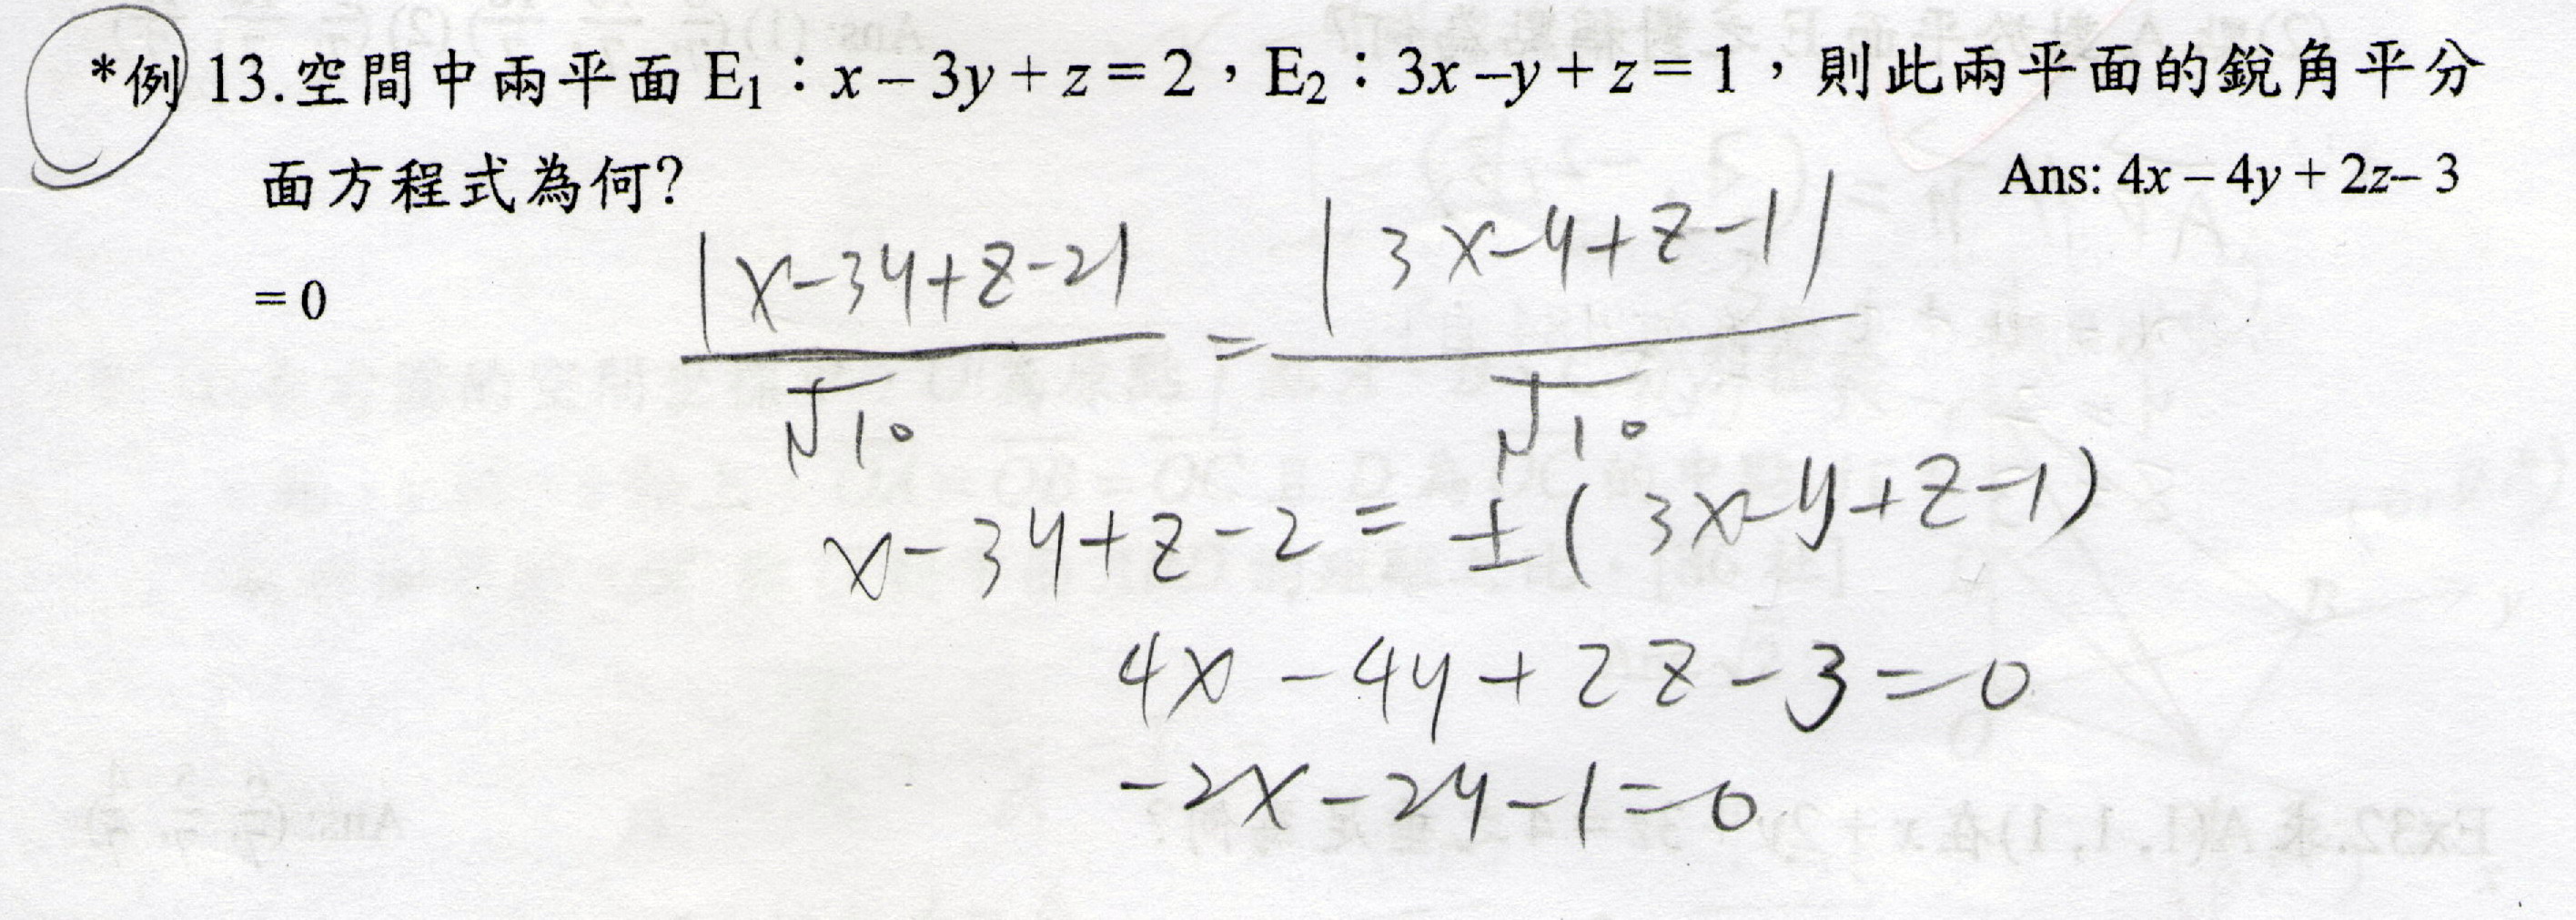 *例 13.空間中兩平面 E₁：x – 3y + z = 2，E₂：3x –y + z = 1，則此兩平面的銳角平分
面方程式為何? Ans: 4x – 4y + 2z– 3
= 0
|x-3y+z-2| / √10 = |3x-y+z-1| / √10
x-3y+z-2 = ±(3x-y+z-1)
4x-4y+2z-3=0
-2x-2y-1=0